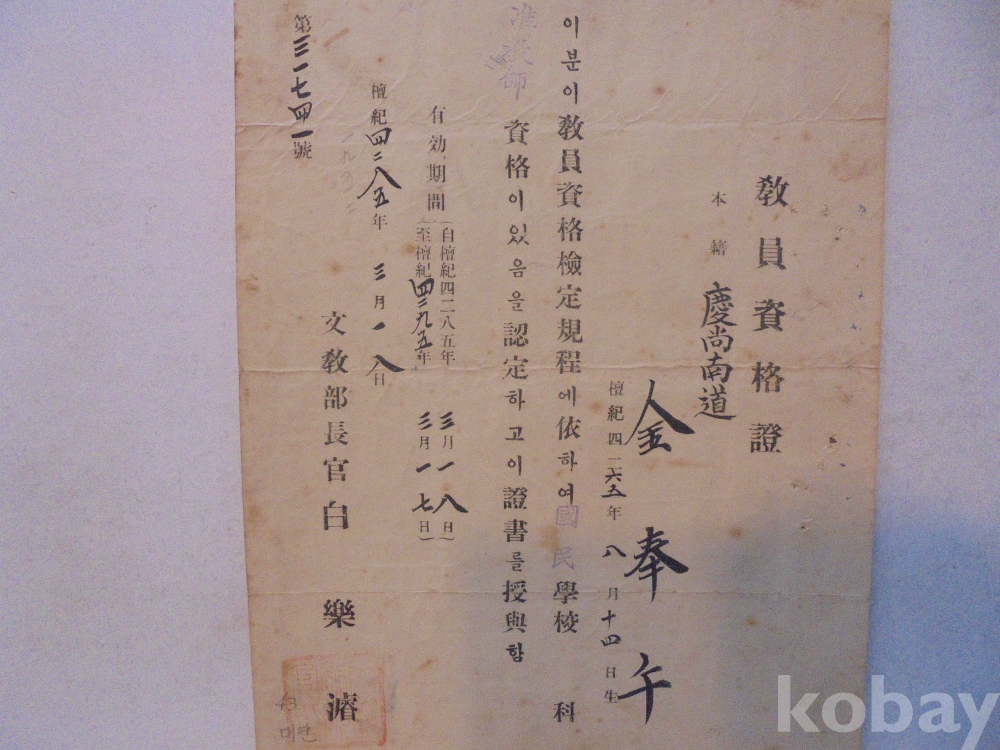 敎員資格證
本籍 慶尙南道
金奉午
檀紀四二六五年八月十四日生
이분이敎員資格檢定規程에依하여國民學校 科
准敎師資格이있음을認定하고이證書를授與함
有効期間
自檀紀四二八五年三月一八日
至檀紀四二九五年三月一七日
檀紀四二八五年三月一八日
文敎部長官白樂濬
第三一七四一號
43
kobay